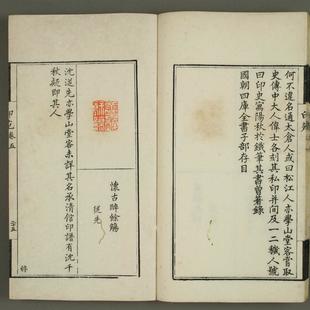 何不違名通太倉人或曰松江人亦學山堂客嘗取
史傳中大人偉士各刻其私印并間及一二穢人號
曰印史寓陽秋於鐵筆其書曾著錄
國朝四庫全書子部存目
懷古
餘觴
從先
沈逆先亦學山堂客未詳其名承清信印譜有沈千
秋疑即其人
卷五